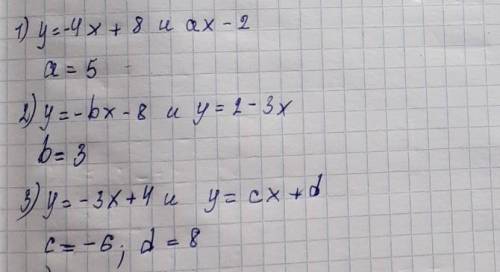 1) y=-4x+8 и ax-2
a=5
2) y=-bx-8 и y=2-3x
b=3
3) y=-3x+4 и y=cx+d
c=-6; d=8